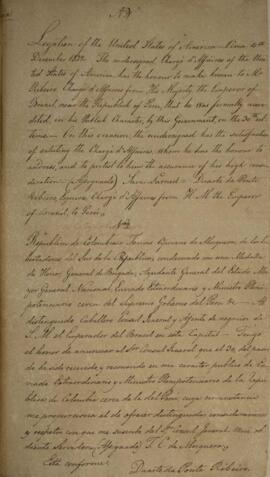 Legation of the United States of America - Lima 4th
December 1832. The undersigned Chargé d'Affaires of the Uni
ted States of America has the honour to make known to Mr.
Ribeiro Chargé d'Affaires from His Majesty the Emperor of
Brazil, near the Republick of Peru, that he was formally accre
dited, in his Publick Character, by this Government, on the 30th
- On this occasion, the undersigned has the satisfaction
of saluting the Chargé d'Affaires, whom he has the honour to
address, and to protest to him the assurance of his high consi
deration - (Assignado) Saml Larned - Duarte da Ponte
Ribeiro Esquire Chargé d'Affaires from H. M. the Emperor
of Brazil, to Peru.
Republica de Colombia = Tomas Cipriano de Mosquera, de los Li
bertadores del Sur de la Republica, condecorado con una Medalla
de Honor, General de Brigada, Ayudante General del Estado Ma
yor General Nacional, Enviado Estraordinario y Ministro Pleni
potenciario cerca del Supremo Gobierno del Peru &c - Al
distinguido Caballero Consul Jeneral y Ajente de negocios de
S. M. el Emperador del Brasil en esta Capital - Tengo
el honor de anunciar al Sor Consul Jeneral que el 30 del pasado
he sido recibido y reconocido en mi caracter publico de En
viado Estraordinario y Ministro Plenipotenciario de la Repu
blica de Colombia cerca de la del Peru, cuya circunstancia
me proporciona el de ofrecer distinguidas consideraciones
y respetos con que me suscribo del Sr Consul Jeneral muy obe
diente Servidor (Assignado) T. C. de Mosquera.
Está conforme
Duarte da Ponte Ribeiro.